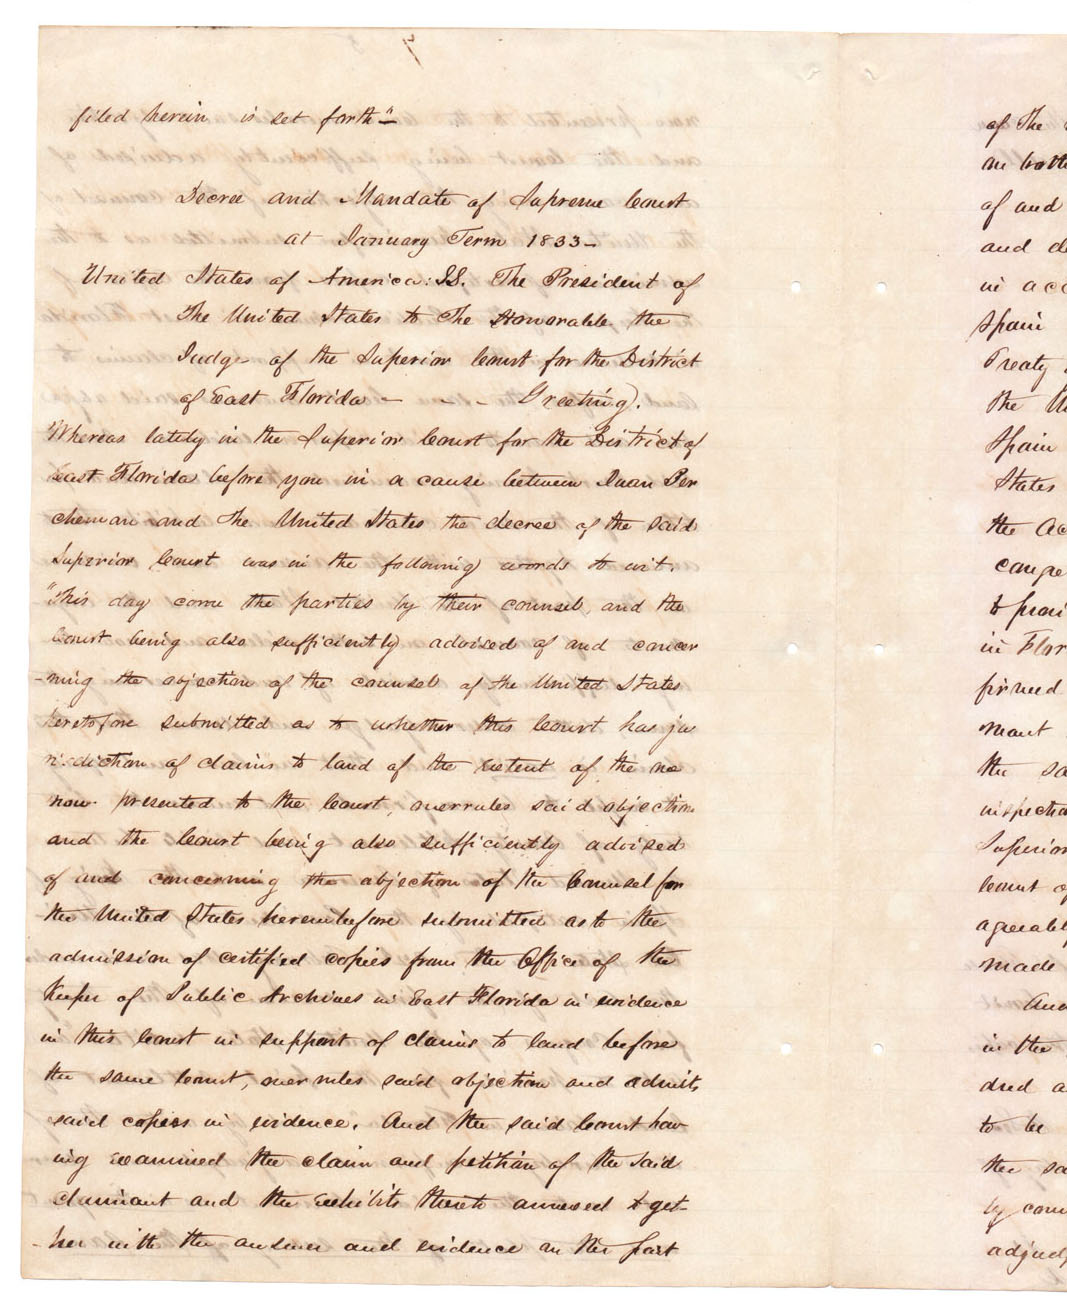 7
filed herein is set forth"—
Decree and Mandate of Supreme Court
at January Term 1833—
United States of America: SS. The President of
The United States to The Honorable the
Judge of the Superior Court for the District
of East Florida - - - Greeting.
Whereas lately in the Superior Court for the District of
East Florida before you in a cause between Juan Per
cheman and the United States the decree of the said
Superior Court was in the following words to wit.
"This day come the parties by their counsel, and the
Court being also sufficiently advised of and concer
-ning the objection of the counsel of the United States
heretofore submitted as to whether this Court has ju
risdiction of claims to land of the extent of the no
now presented to the Court, overrules said objection
and the Court being also sufficiently advised
of and concerning the objection of the Counsel for
the United States hereinbefore submitted as to the
admission of certified copies from the Office of the
Keeper of Public Archives in East Florida in evidence
in this Court in support of claims to land before
the same Court, overrules said objection and admits
said copies in evidence. And the said Court hav
ing examined the claim and petition of the said
claimant and the exhibits thereto annexed toget-
-her with the answer and evidence on the part
of The
on both
of and
and de
in acc
Spain
Treaty
the Un
Spain
States
the Ac
congre
to provi
in Flor
firmed
ment
the sa
inspection
Superior
Court of
agreeabl
made
And
in the
dred a
to be
the sa
by com
adjudg